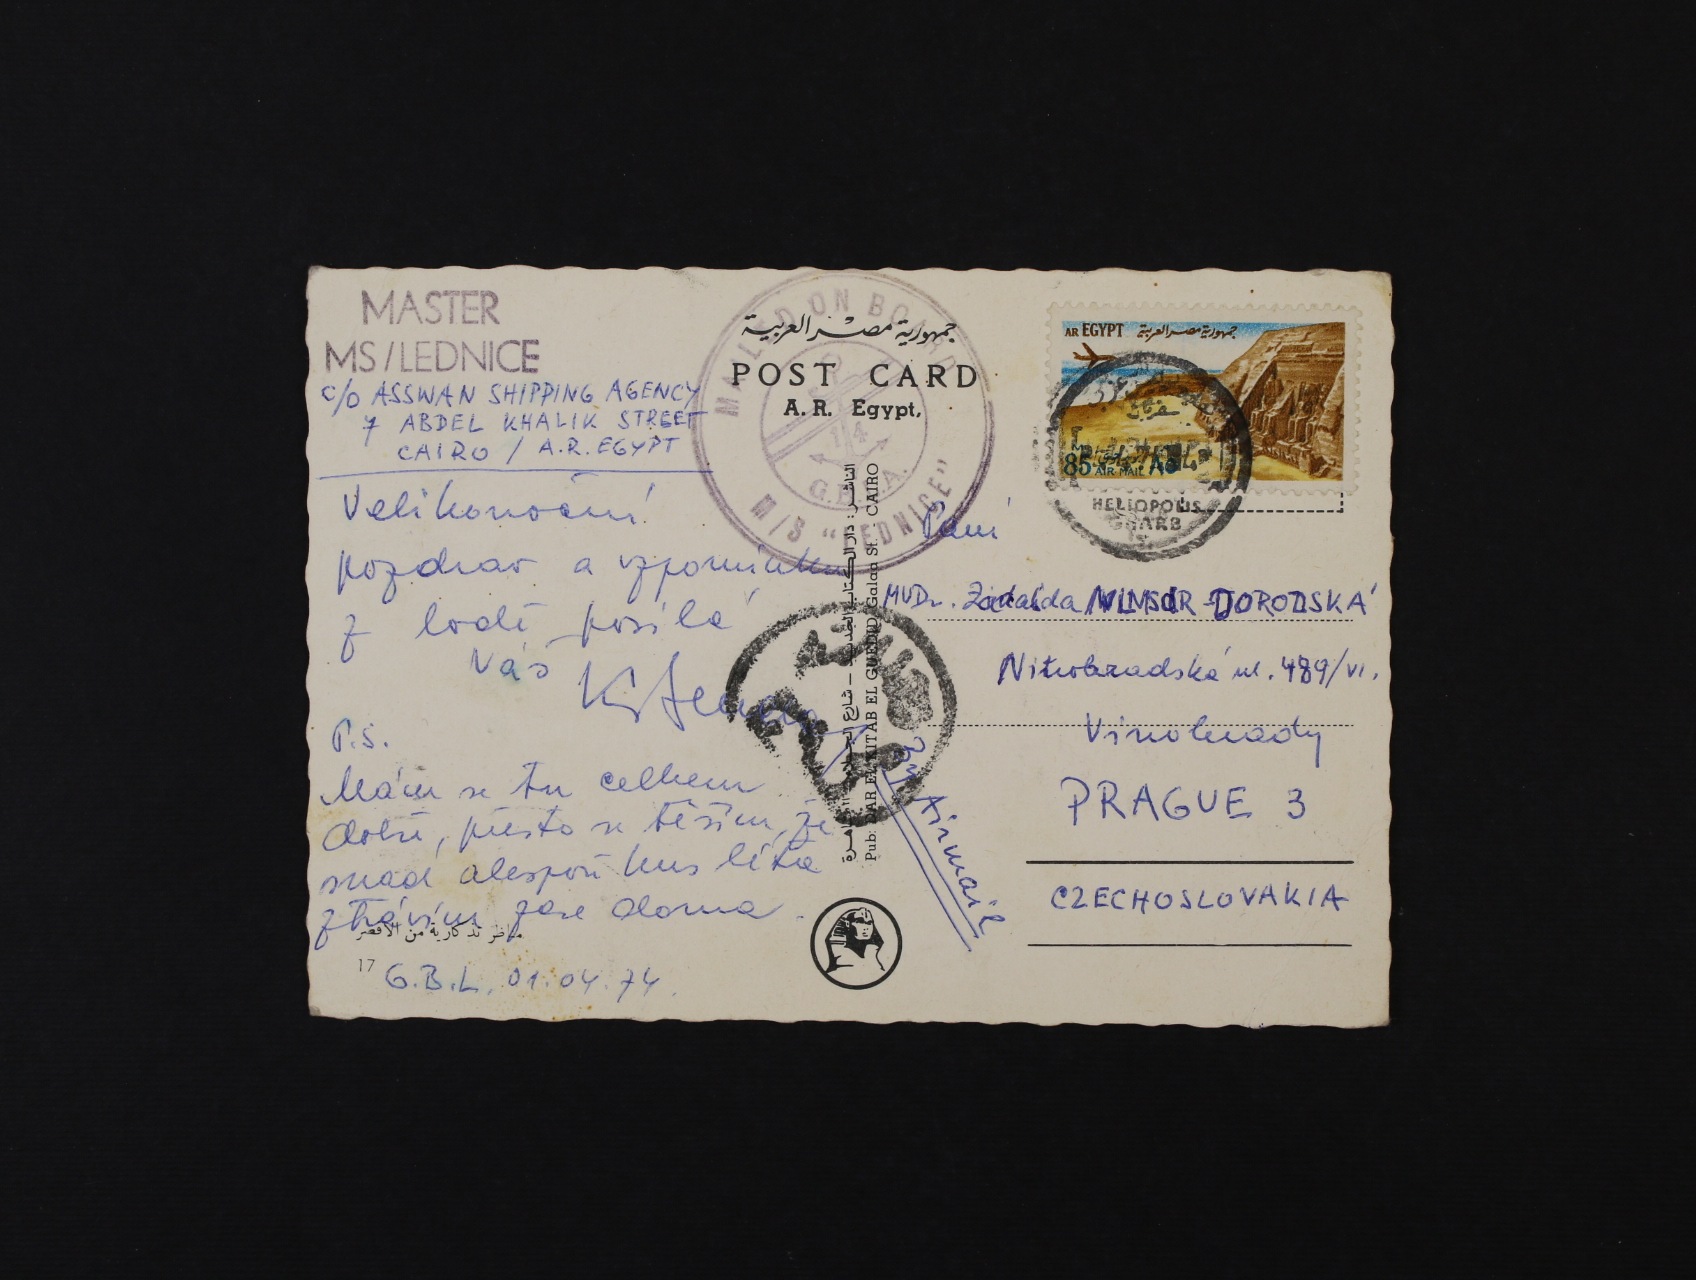 MASTER
MS/LEDNICE
c/o ASSWAN SHIPPING AGENCY
7 ABDEL KHALIK STREET
CAIRO / A.R. EGYPT
Velikonoční
pozdrav a vzpomínku
z lodi posílá
Váš
P.S.
Mám se tu celkem
dobře, přesto se těším, že
snad alespoň kus léta
ztrávím zase doma.
مناظر تذكارية من الأقصر
17
G.B.L. 01.04.74.
MAILED ON BOARD
M/S "LEDNICE"
جمهورية مصر العربية
POST CARD
A. R. Egypt,
الناشر: دار الكتاب الجديد – شارع الجلاء القاهرة
Pub: DAR EL KITAB EL GUEDID Galaa St. CAIRO
AR EGYPT جمهورية مصر العربية
85 AIR MAIL
HELIOPOLIS
GHARB
Paní
MUDr.
489/VI.
Vinohrady
PRAGUE 3
CZECHOSLOVAKIA
Airmail